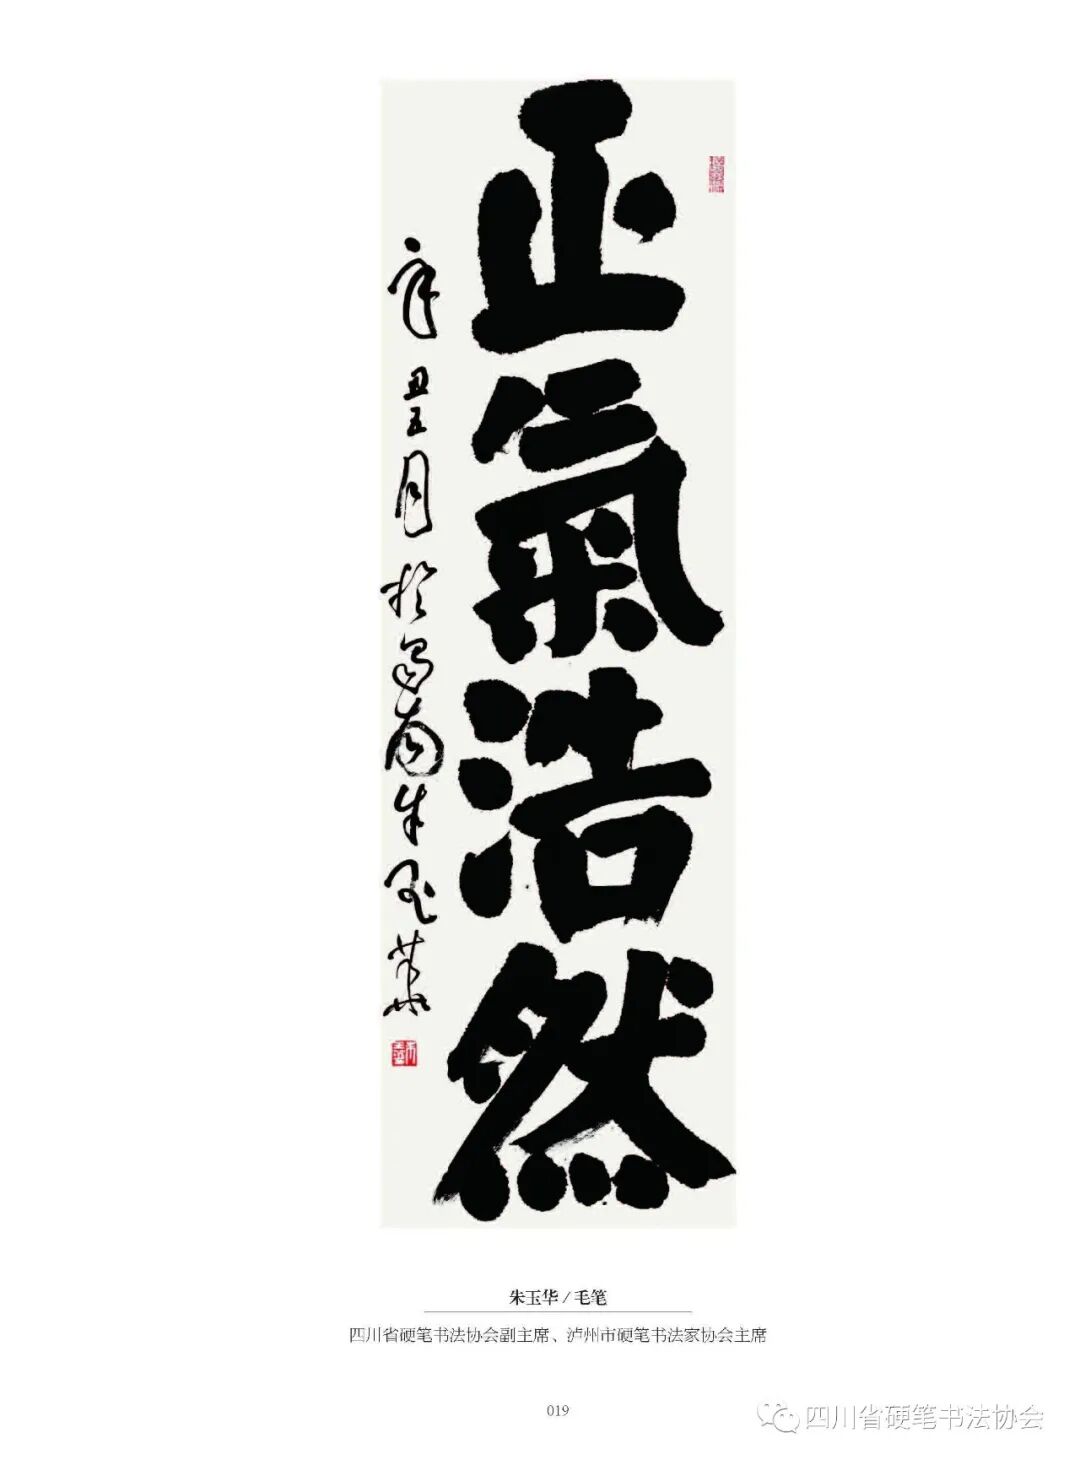 正氣浩然
辛丑五月於蜀南朱玉華
朱玉华 / 毛笔
四川省硬笔书法协会副主席、泸州市硬笔书法家协会主席
019
四川省硬笔书法协会